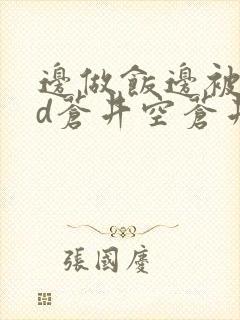 邊做飯邊被
d蒼井空蒼井
張國慶